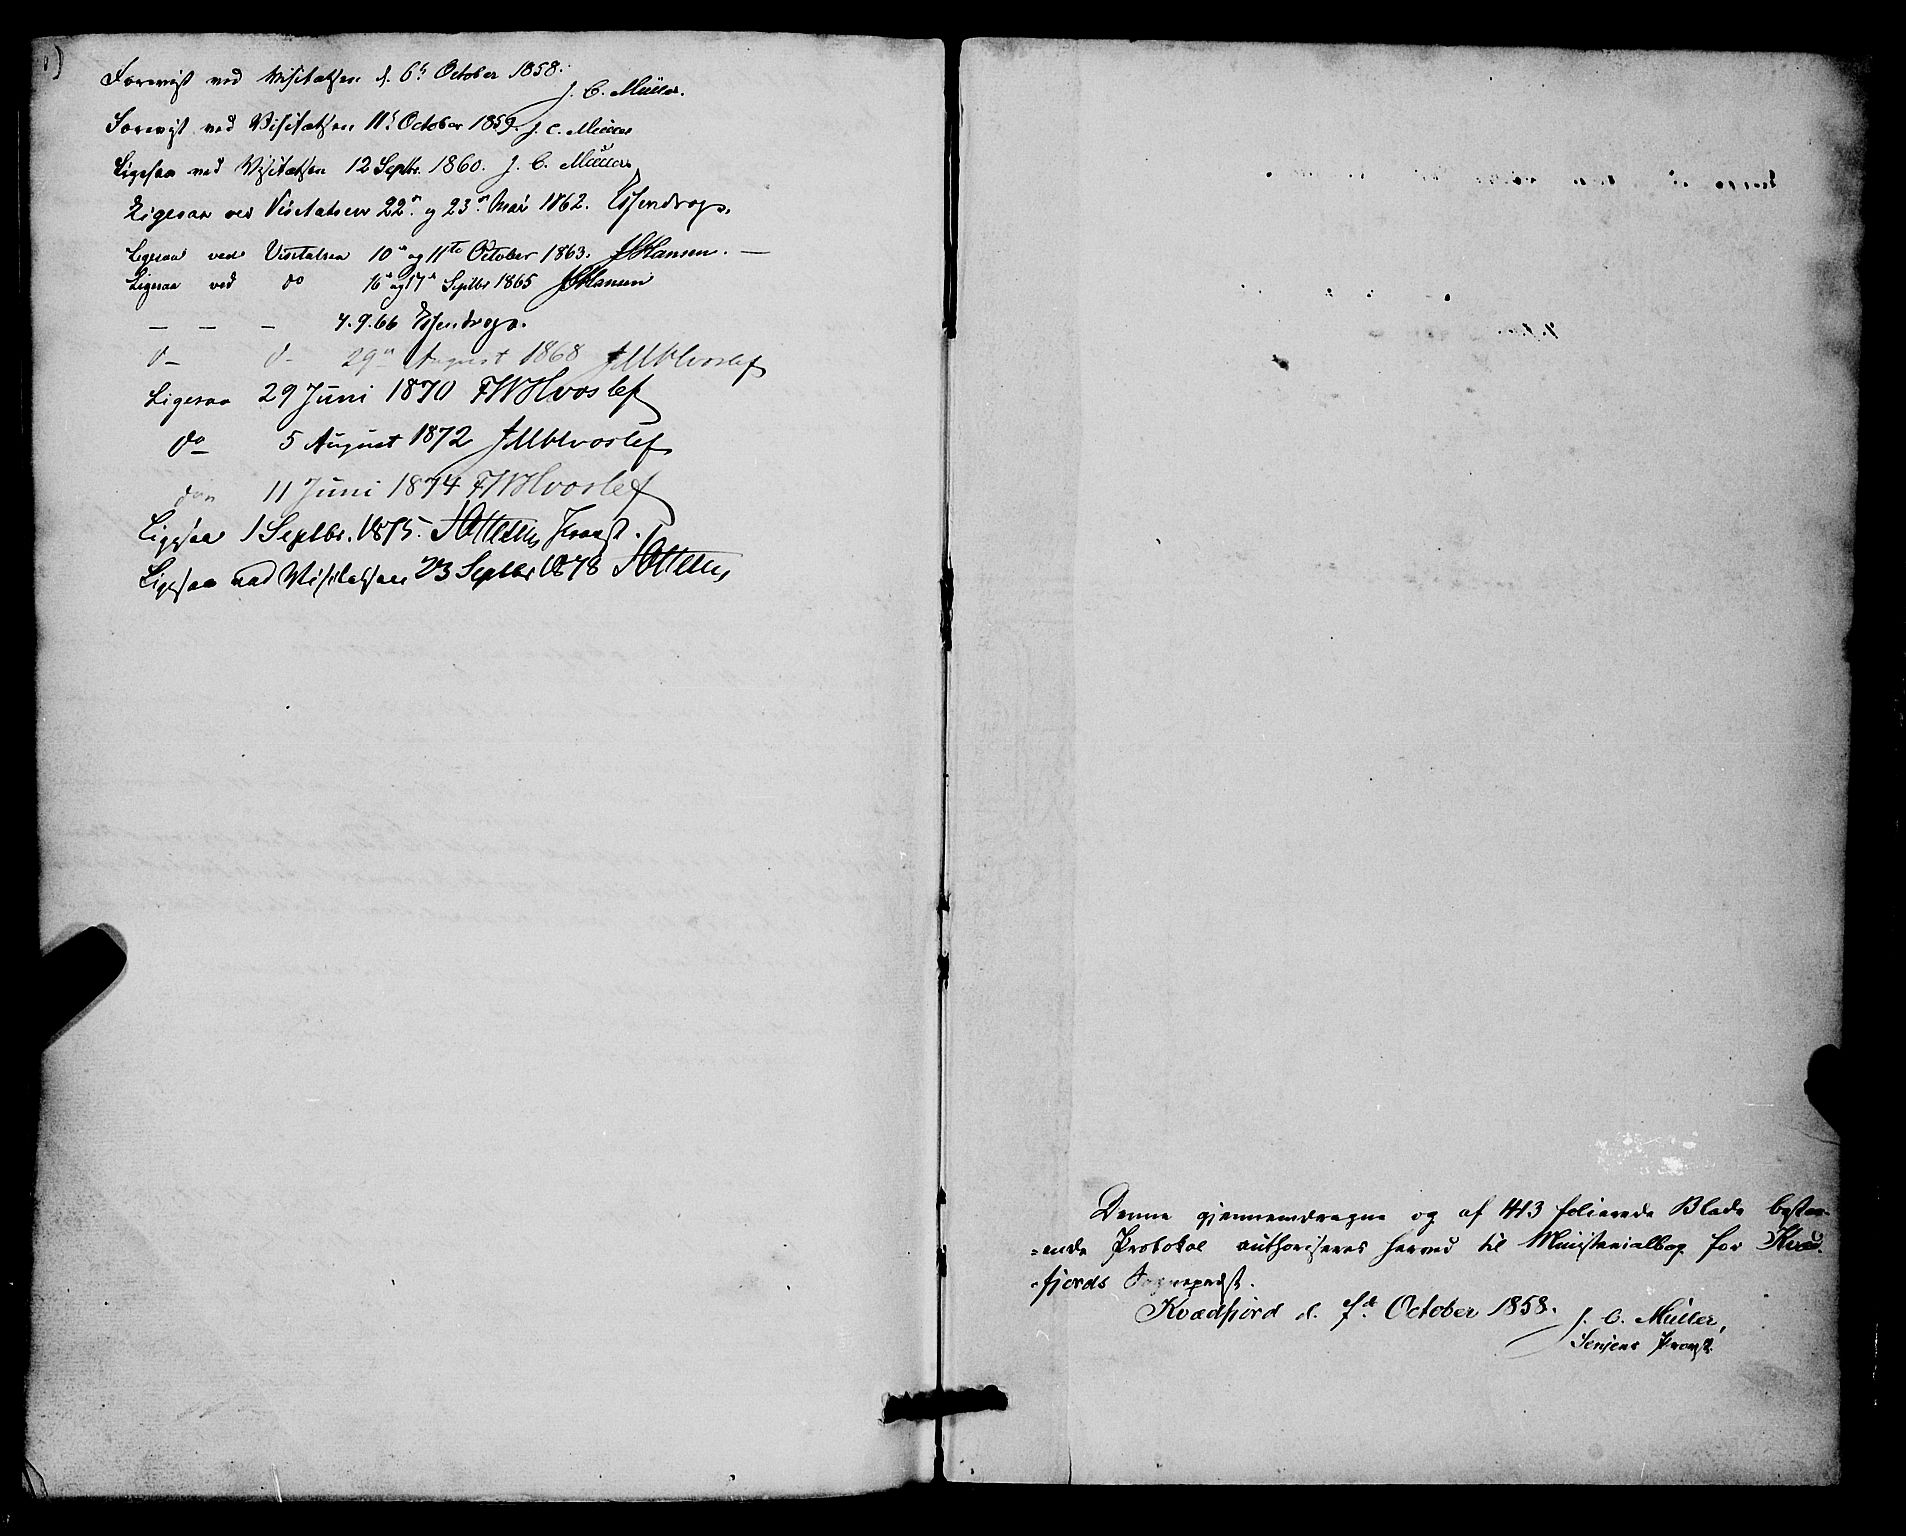 Forevist ved Visitatsen d. 6t October 1858.
J. C. Müller.
Forevist ved Visitatsen 11t October 1859. J. C. Müller
Ligesaa ved Visitatsen 12 Septbr. 1860. J. C. Müller
Ligesaa ved Visitatsen 22n og 23n Mai 1862. Essendrop.
Ligesaa ved Visitatsen 10de og 11te October 1863. Hansen. —
Ligesaa ved do 16de og 17de Septbr 1865 Hansen
— — — 4.9.66 Essendrop.
d— d— 29de August 1868 FWHvoslef
Ligesaa 29 Juni 1870 FWHvoslef
do 5 August 1872 FWHvoslef
do 11 Juni 1874 FWHvoslef
Ligesaa 1 Septbr. 1875. Provst.
Ligesaa ved Visitatsen 23 Septbr 1878
Denne gjennemdragne og af 413 folierede Blade bestaa-
=ende Protokol authoriseres herved til Ministerialbog for Kvæd-
=fjords Sognepræst.
Kvædfjord d. 7de October 1858.
J. C. Müller,
Senjens Provst.